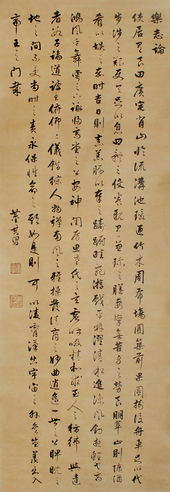 樂志論
使居有良田廣宅背山臨流溝池環匝竹木周布場圃築前果園樹後舟車足以代
步涉之難使令足以息四體之役養親有兼珍之膳妻孥無苦身之勞良朋萃止則陳酒
肴以娛之嘉時吉日則烹羔豚以奉之躊躇畦苑遊戲平林濯清水追涼風釣遊鯉弋高
鴻風於舞雩之下詠歸高堂之上安神閨房思老氏之玄虛呼吸精和求至人之彷彿與達
者數子論道講書俯仰二儀錯綜人物彈南風之雅操發清商之妙曲逍遙一世之上睥睨天
地之間不受當時之責永保性命之期如是則可以凌霄漢出宇宙之外矣豈羨夫入
帝王之門哉
董其昌